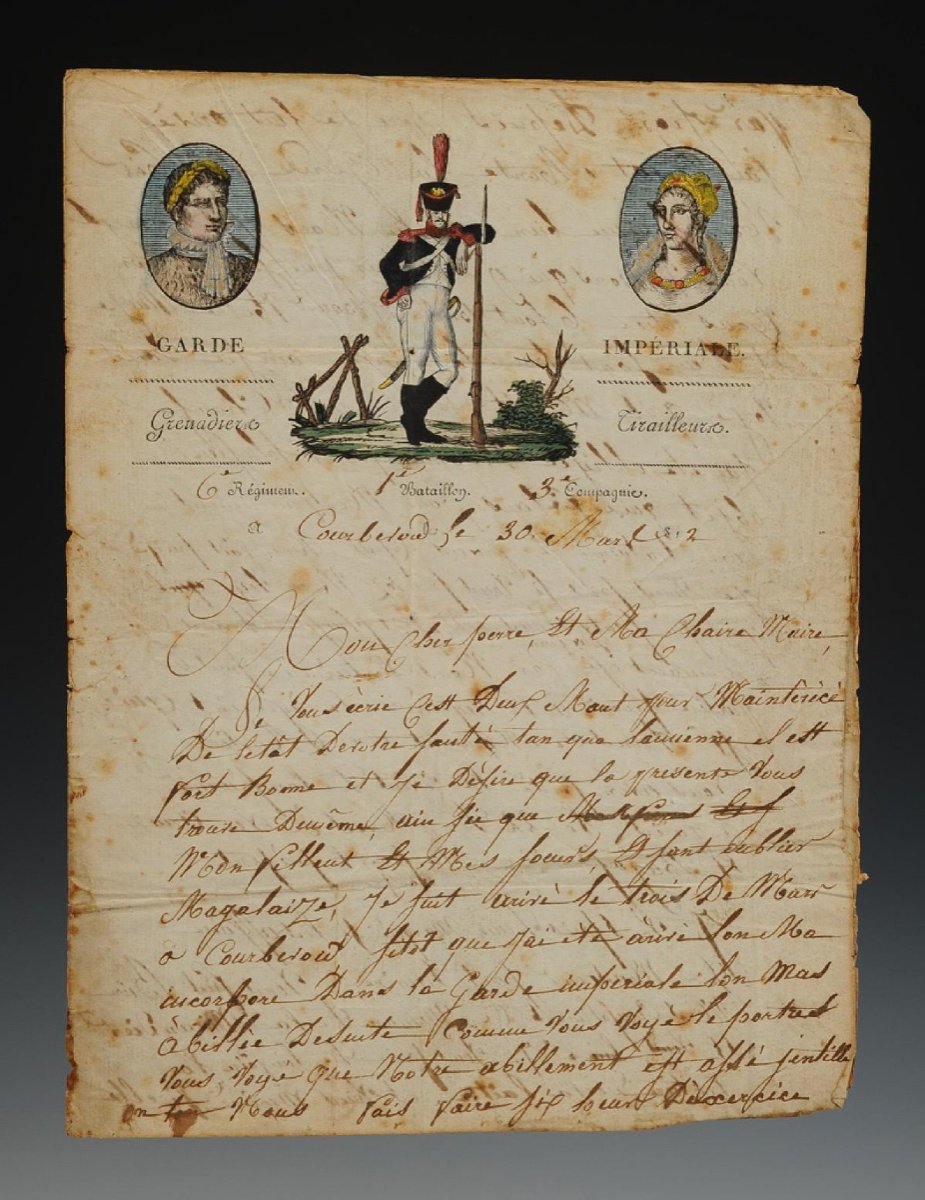 GARDE IMPÉRIALE.
Grenadiers Tirailleurs.
6e Régiment. 1e Bataillon. 3e Compagnie.
a Courberoid le 30 Mars 812
Mon Cher perre, Et Ma Chaire Maire,
Je Vous ècrie C'est Deux Maut pour Maintèrècé
De letât De votre santé tan que lamienne el est
fort Bonne et Je Dèsire que la presente Vous
trouve Demême, ain sie que
Mon filleut Et Mes soeurs, Et sant oublier
Magalaize, Je suit arivè le trois De Mars
a Courberoid sitot que Jæ etè arive lon Ma
incorpore Dans la Garde impèriale lon Mas
abillèe Desuite Comme Vous Voyè le portret
Vous Voyè que Notre abillement est assè jentille
on Nous fais faire six heurs Dèxercice